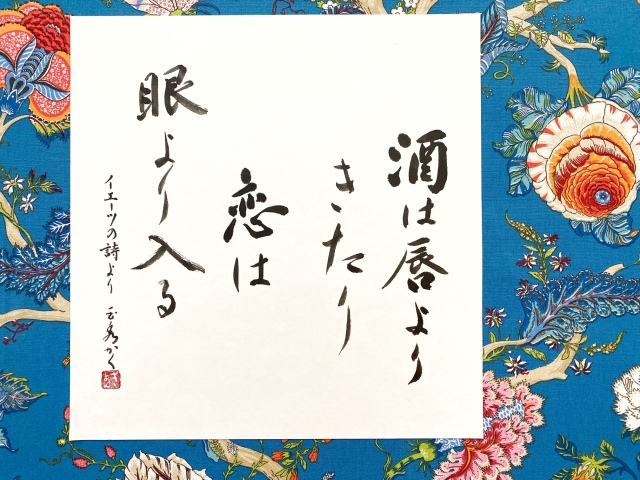 酒は唇より
きたり
恋は
眼より入る
イエーツの詩より
かく